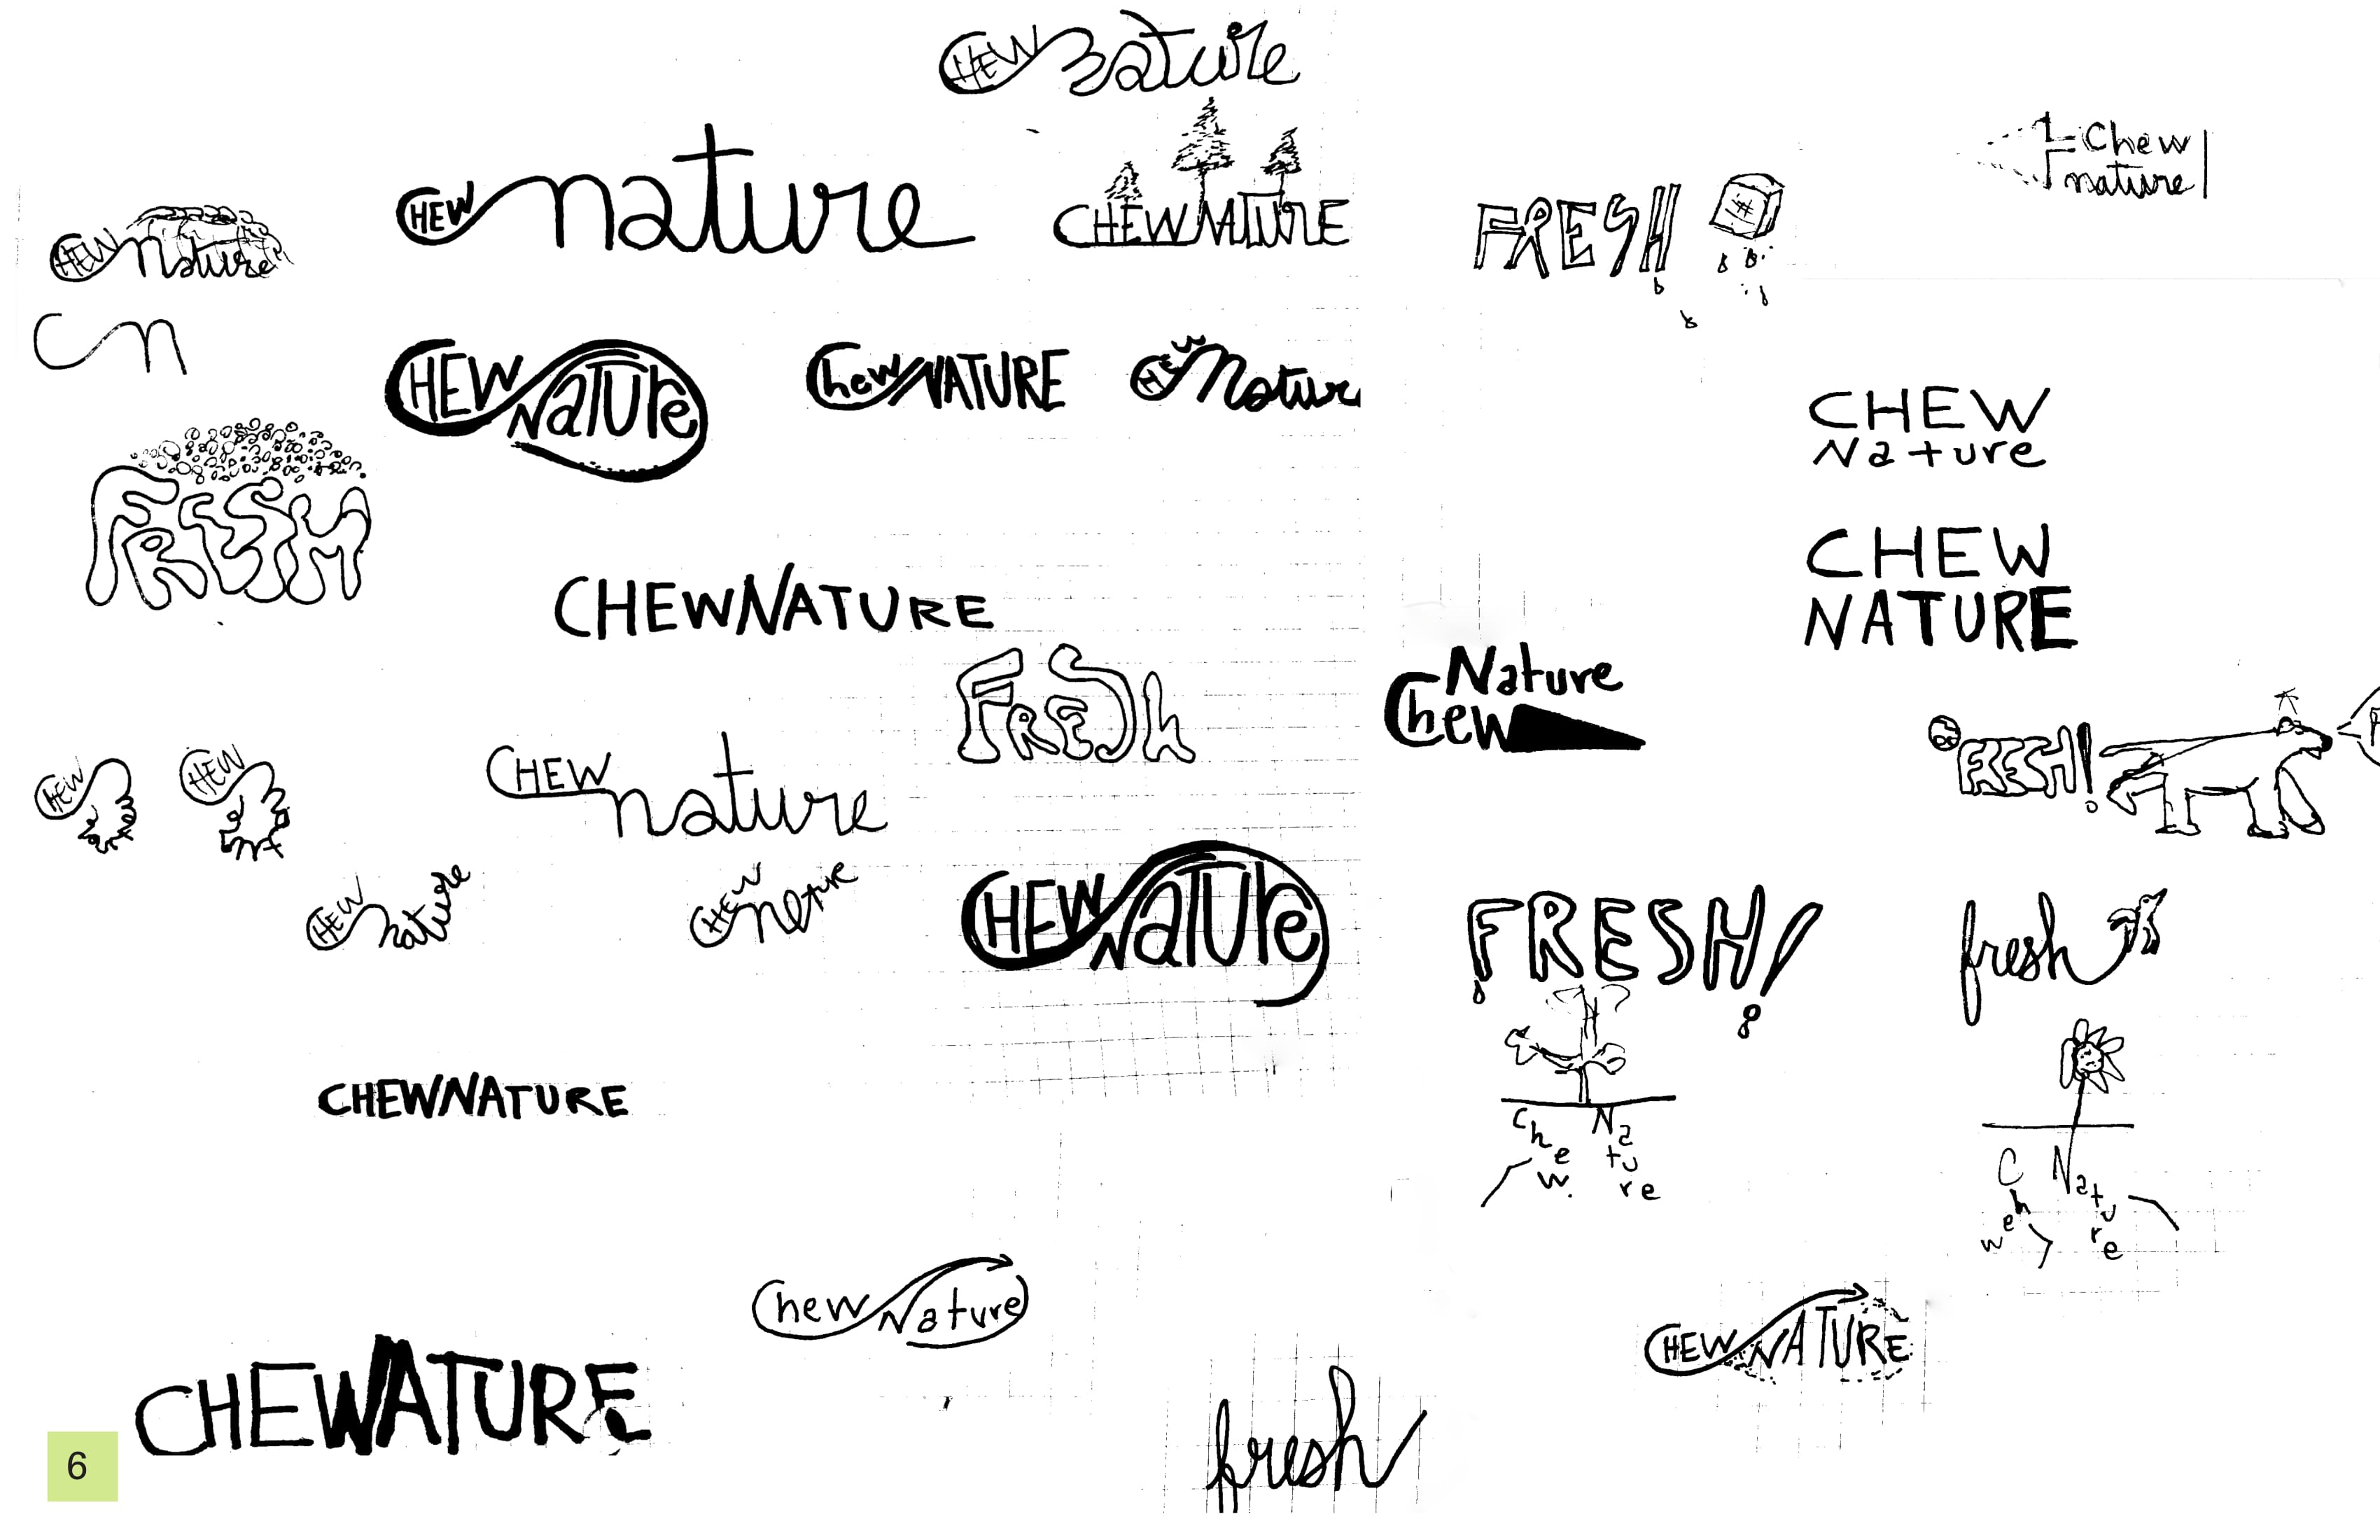 CHEW nature
CHEW nature
CHEW NATURE
FRESH
Chew
nature
CHEW nature
Cn
CHEW
Nature
Chew NATURE
CHEW Natur
CHEW
Nature
FRESH
CHEWNATURE
CHEW
NATURE
FRESh
Nature
Chew
FRESH!
CHEW
CHEW
CHEW
nature
CHEW nature
CHEW nature
CHEW
Nature
FRESH!
fresh
CHEWNATURE
Chew
Nature
Chew
Nature
Chew Nature
CHEW NATURE
CHEWATURE
fresh
6